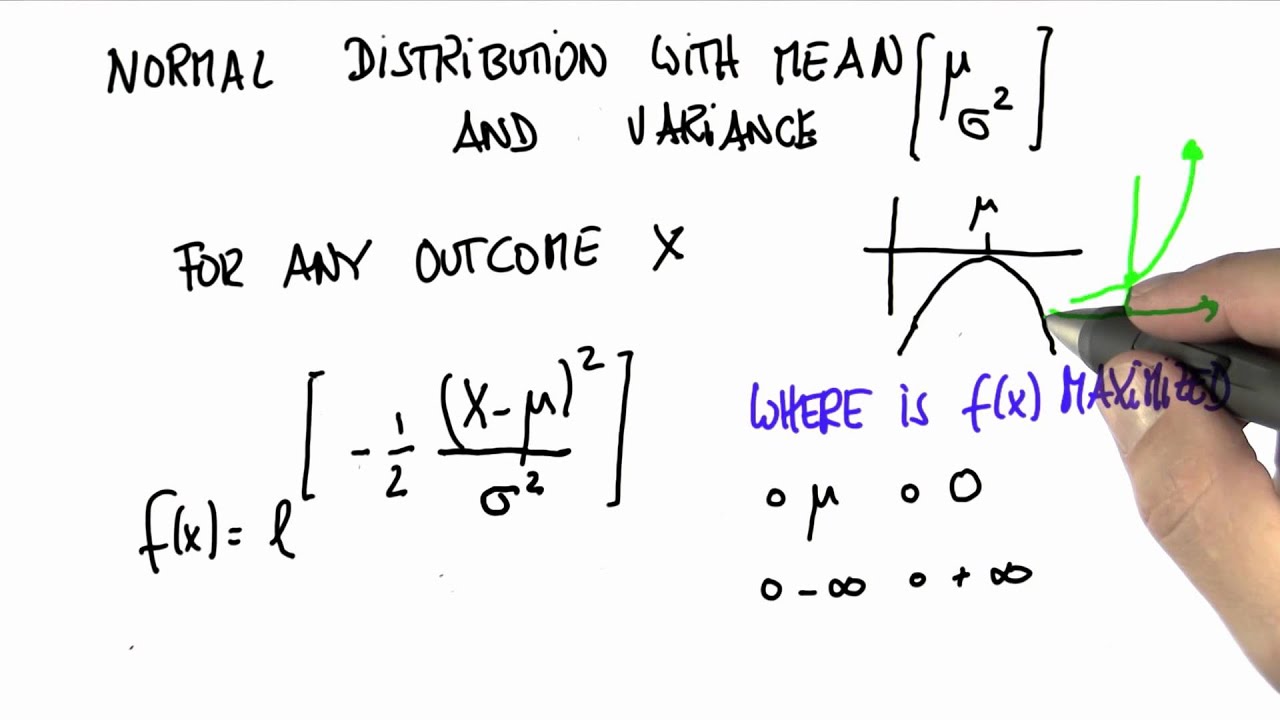 NORMAL DISTRIBUTION WITH MEAN [μ
AND VARIANCE σ²]
μ
FOR ANY OUTCOME X
f(x) = e^[-1/2 (X-μ)²/σ²]
WHERE is f(x) MAXIMIZED
o μ o 0
o -∞ o +∞